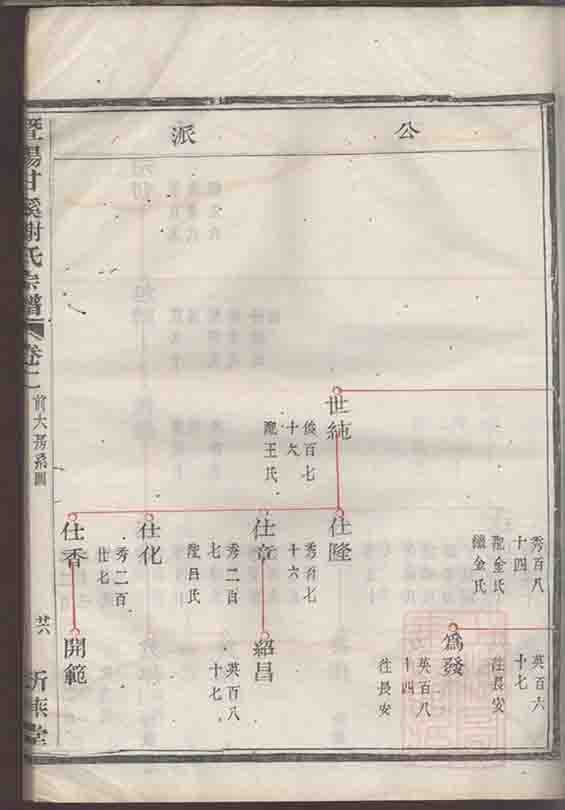 公派
秀百八
十四
配金氏
繼金氏
英百六
十七
往長安
爲發
英百八
十四
往長安
世純
俊百七
十六
配王氏
仕隆
秀百七
十六
仕章
秀二百
七
配呂氏
紹昌
英百八
十七
仕化
秀二百
仕七
仕香
開範
暨陽甘溪謝氏宗譜
卷二
前大房系圖
廿六